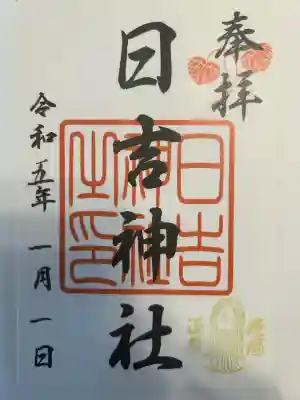 奉拝
日吉神社
日吉
神社
之印
令和五年 一月一日